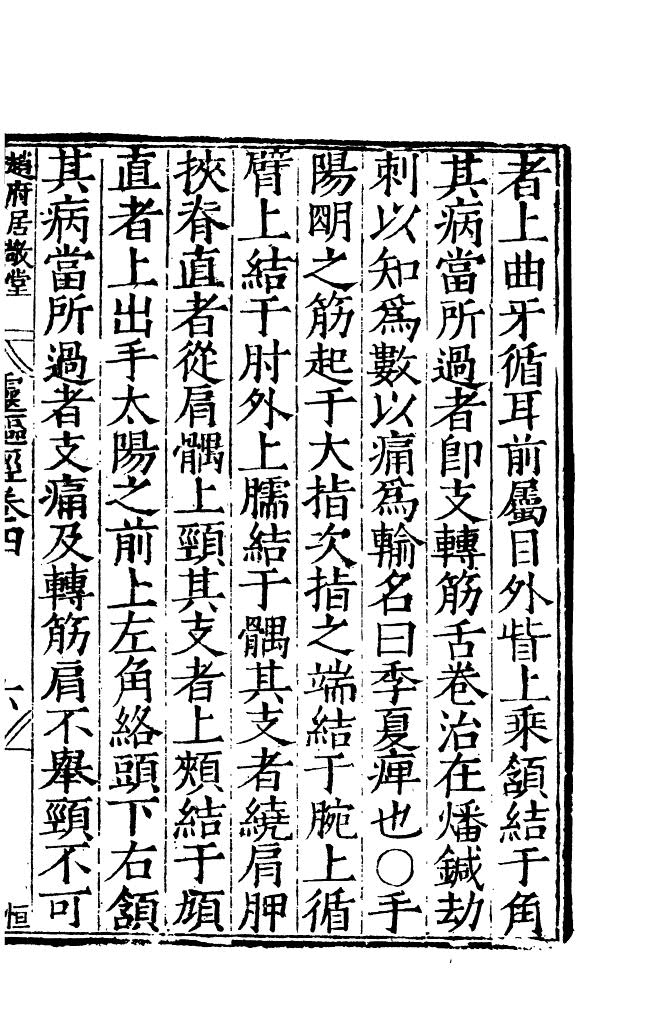 者上曲牙循耳前屬目外眥上乘頷結于角
其病當所過者卽支轉筋舌卷治在燔鍼劫
刺以知爲數以痛爲輸名曰季夏痺也○手
陽明之筋起于大指次指之端結于腕上循
臂上結于肘外上臑結于髃其支者繞肩胛
挾脊直者從肩髃上頸其支者上頰結于頄
直者上出手太陽之前上左角絡頭下右頷
其病當所過者支痛及轉筋肩不舉頸不可
趙府居敬堂
靈樞經卷四
六
恒